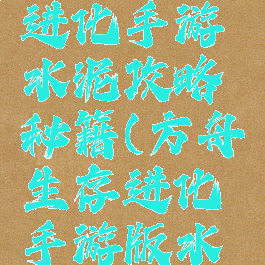 进化手游
水泥攻略
秘籍(方舟
生存进化
手游版水